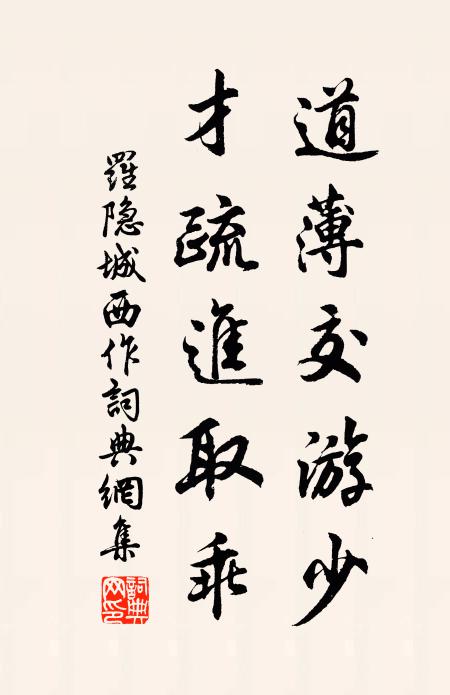 道薄交游少
才疏進取乖
羅隐城西作詞典網集
詞典網印